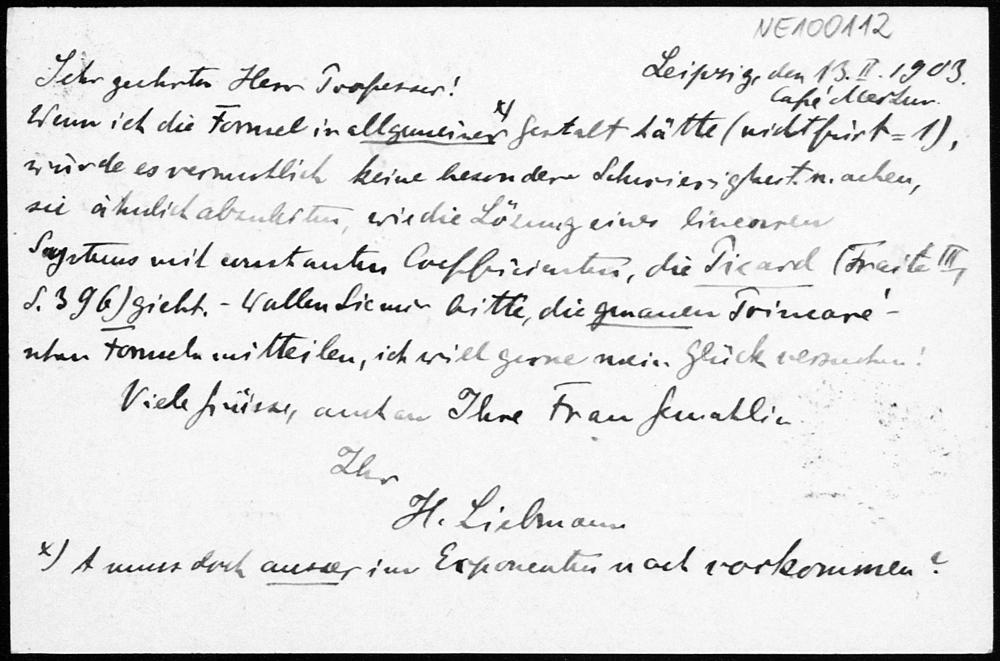 NE100112
Leipzig, den 13. II. 1903.
Café Merkur.
Sehr geehrter Herr Professor!
Wenn ich die Formel in allgemeiner x) Gestalt hätte (nicht für t = 1),
würde es vermutlich keine besondere Schwierigkeit machen,
sie ähnlich abzuleiten, wie die Lösung eines linearen
Systems mit constanten Coefficienten, die Picard (Traité III,
S. 396) giebt. - Wollen Sie mir bitte, die genauen Poincaré-
schen Formeln mitteilen, ich will gerne mein Glück versuchen!
Viele Grüsse, auch an Ihre Frau Gemahlin
Ihr
H. Liebmann
x) t muss doch ausser im Exponenten noch vorkommen?